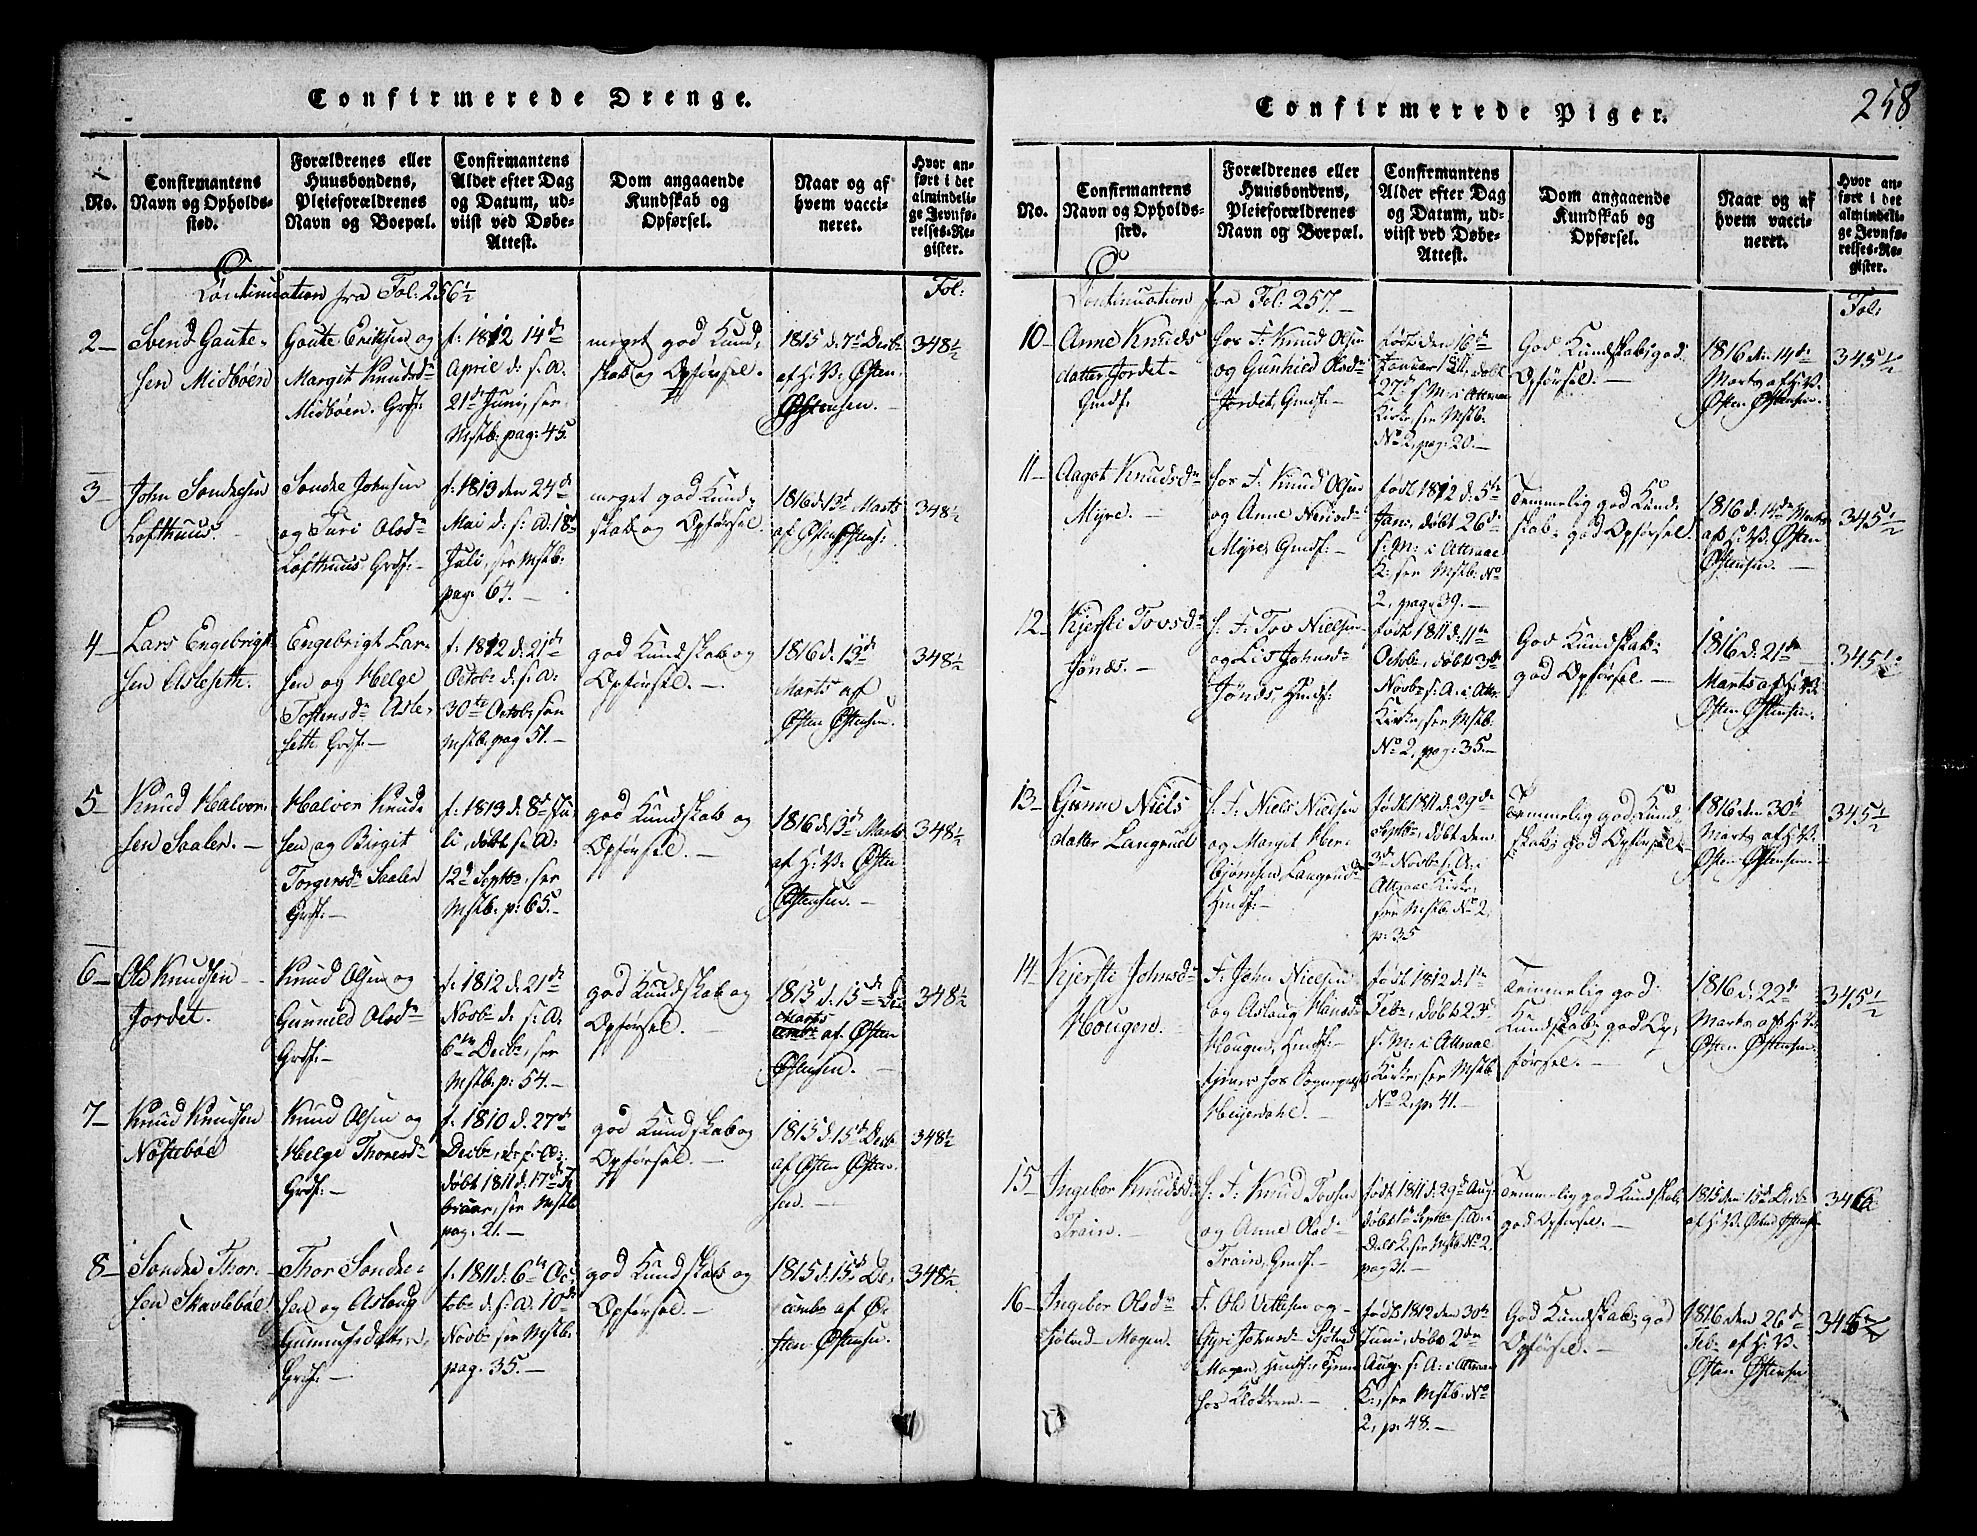 Confirmerede Drenge.
No.
Confirmantens
Navn og Opholds-
sted.
Forældrenes eller
Huusbondens,
Pleieforældrenes
Navn og Boepæl.
Confirmantens
Alder efter Dag
og Datum, ud-
viist ved Døbe-
Attest.
Dom angaaende
Kundskab og
Opførsel.
Naar og af
hvem vacci-
neret.
Hvor an-
ført i det
almindeli-
ge Jevnfø-
relses-Re-
gister.
Continuation fra Fol: 256½
Fol:
2
Svend Gaute-
sen Midbøen
Gaute Eriksen og
Margit Knudsd
Midbøen. Grdf:
f: 1812 14de
April d: s: A.
21de Juni, see
Mstb: pag: 45.
meget god Kund-
skab og Opførsel.
1815 d. 7de Decb
af H: B: Østen
Østensen.
348½
3
John Sondresen
Lofthuus.
Sondre Johnsen
og Turi Olsd
Lofthuus Grdf:
f: 1813 den 24de
Mai d: s: A. 18de
Juli, see Mstb:
pag: 64.
meget god Kund-
skab og Opførsel.
1816 d. 13de Marts
af Østen Østens:
348½
4
Lars Engebrigt-
sen Asleseth.
Engebrigt Lar-
sen og Helge
Tostensd Asle-
seth. Grdf:
f: 1812 d. 21de
Octob d. s: A:
30te Octob, see
Mstb: pag 51.
god Kundskab og
Opførsel.
1816 d. 13de
Marts af
Østen Østensen.
348½
5
Knud Halvor-
sen Saaler.
Halvor Knud-
sen og Birgit
Torgersd Saaler
Grdf:
f: 1813 d. 8de Ju-
li, døbt s: A:
12te Septb, see
Mstb: p: 65.
god Kundskab og
Opførsel.
1816 d. 13de Marts
af H: B: Østen
Østensen.
348½
6
Ole Knudsen
Jordet.
Knud Olsen og
Gunnild Olsd
Grdf:
f: 1812 d. 21de
Novb d. s: A:
6te Decb, see
Mstb: p: 54.
god Kundskab og
Opførsel.
1815 d. 15de De
Marts
cemb af Østen
Østensen.
348½
7
Knud Knudsen
Nøstebøe
Knud Olsen og
Helge Thoresd
Grdf:
f: 1810 d. 27de
Decb, d. s: A:
døbt 1811 d. 17de Fe
bruar, see Mstb
pag: 21.
god Kundskab og
Opførsel.
1815 d. 15de Decb
af Østen Østen-
sen.
348½
8
Sondre Thor-
sen Skavlebøe
Thor Sondre-
sen og Aslaug
Gunnufsdatter,
Grdf:
f: 1811 d. 6te Oc-
tob d. s: A. 10de
Novb see Mstb:
pag. 35.
god Kundskab og
Opførsel.
1815 d. 15de De-
cemb af Ø-
sten Østensen.
348½
Confirmerede Piger.
258
No.
Confirmantens
Navn og Opholds-
sted.
Forældrenes eller
Huusbondens,
Pleieforældrenes
Navn og Boepæl.
Confirmantens
Alder efter Dag
og Datum, ud-
viist ved Døbe-
Attest.
Dom angaaende
Kundskab og
Opførsel.
Naar og af
hvem vacci-
neret.
Hvor an-
ført i det
almindeli-
ge Jevnfø-
relses-Re-
gister.
Continuation fra Fol: 257.
Fol:
10
Anne Knuds
datter Jordet
Gmdf.
hos F: Knud Olsen
og Gunhild Olsd
Jordet, Gmdf:
født den 16de
Januar 1811, døbt
27de s: M: i Attraae
Kirke, see Mstb.
No 2, pag: 20.
God Kundskab; god
Opførsel.
1816 d. 14de
Marts af H: B:
Østen Østensen.
345½
11
Aagot Knudsd
Myre.
hos F: Knud Olsen
og Anne Neusd
Myre, Gmdf:
født 1812 d. 5te
Jan:, døbt 26de
s: M: i Attraae
K: see Mstb: No
2, pag. 39.
Temmelig god Kund-
skab, god Opførsel.
1816 d. 14de Marts
af H: B: Østen
Østensen.
345½
12
Kjersti Tovsd
Jønds.
h: F: Tov Nielsen
og Lis Johnsd
Jønds, Hmdf:
født 1811 d. 11te
Octob, døbt 3de
Novb s: A: i Attr.
Kirke, see Mstb.
No 2, pag: 35.
God Kundskab,
god Opførsel.
1816 d. 21de
Marts af H: B:
Østen Østensen.
345½
13
Gunne Niels
datter Langrud
h: F: Niels Nielsen
og Margit Her-
bjørnsen, Langrud
Hmdf:
født 1811 d. 29de
Septb, døbt den
3de Novb s: A: i
Attraae Kirke,
see Mstb. No 2,
p: 35
Temmelig god Kund-
skab; god Opførsel.
1816 den 30te
Marts af H: B:
Østen Østensen.
345½
14
Kjersti Johnsd
Hougen.
F: John Nielsen
og Aslaug Hansd
Hougen, Hmdf:
tjener hos Sognepræst
Heyerdahl.
født 1812 d. 1te
Feb, døbt 23de
s: M: i Attraae
Kirke, see Mstb
No 2, p: 41.
Temmelig god
Kundskab, god Op-
førsel.
1816 d. 22de
Marts af H: B:
Østen Østensen.
345½
15
Ingebor Knudsd
Train.
h: F: Knud Tovsen
og Anne Olsd
Train, Gmdf.
født 1811 d. 29de Aug.
døbt 1te Septb s: A: i
Dals K. see Mstb No 2,
pag 31.
Temmelig god Kundskab,
god Opførsel.
1815 den 15de Decb
af H: B: Østen Østensen
346
16
Ingebor Olsd
Sjøtved Mogen.
F. Ole Vetlesen og
Gyri Johnsd Sjøtved
Mogen, Hmdf: Tjener
hos Klokkeren.
født 1812 den 30te
Juni, døbt 2den
Aug. s: A: i Attraae
K:, see Mstb: No
2, p: 48.
God Kundskab; god
Opførsel.
1816 den 26de
Feb: af H: B:
Østen Østensen
346½